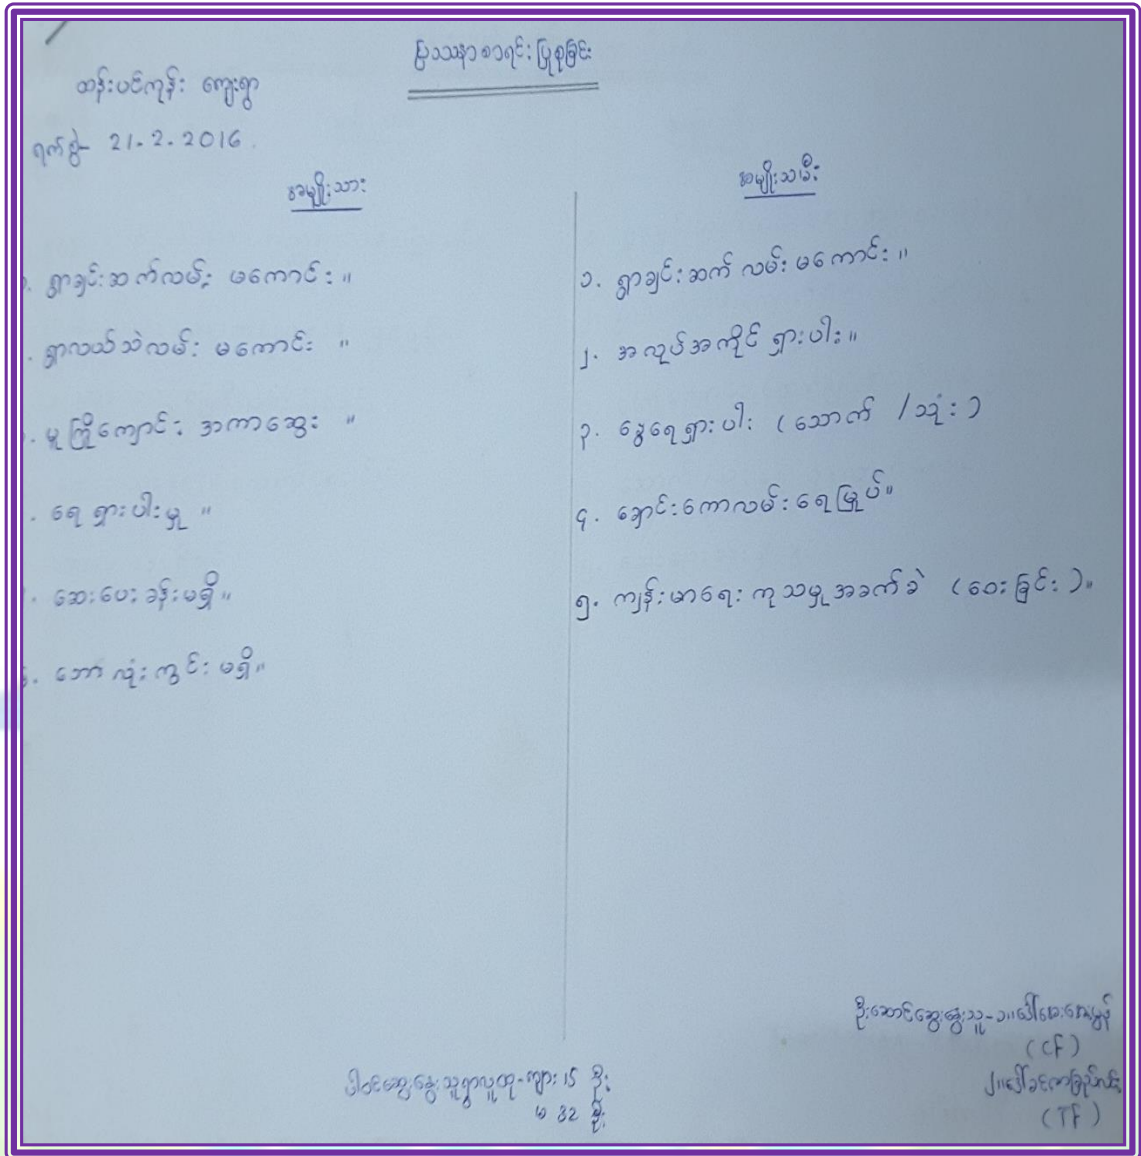 ပြဿနာစာရင်းပြုစုခြင်း
ထန်းပင်ကုန်း ကျေးရွာ
ရက်စွဲ- 21.2.2016.
အမျိုးသား
ရွာချင်းဆက်လမ်း မကောင်း။
ရွာလယ်သဲလမ်း မကောင်း ။
မူကြိုကျောင်း အကာဆွေး ။
ရေရှားပါးမှု ။
ဆေးပေးခန်းမရှိ။
ဘောလုံးကွင်းမရှိ။
အမျိုးသမီး
၁. ရွာချင်းဆက် လမ်း မကောင်း ။
၂. အလုပ်အကိုင် ရှားပါး ။
၃. နွေရေရှားပါး (သောက် /သုံး)
၄. ချောင်းကောလမ်းရေမြှုပ်။
၅. ကျန်းမာရေး ကုသမှုအခက်ခဲ (ဝေးခြင်း)။
ပါဝင်ဆွေးနွေးသူရွာလူထု-ကျား 15 ဦး
မ 32 ဦး
ဦးဆောင်ဆွေးနွေးသူ-၁။
(CF)
၂။
(TF)